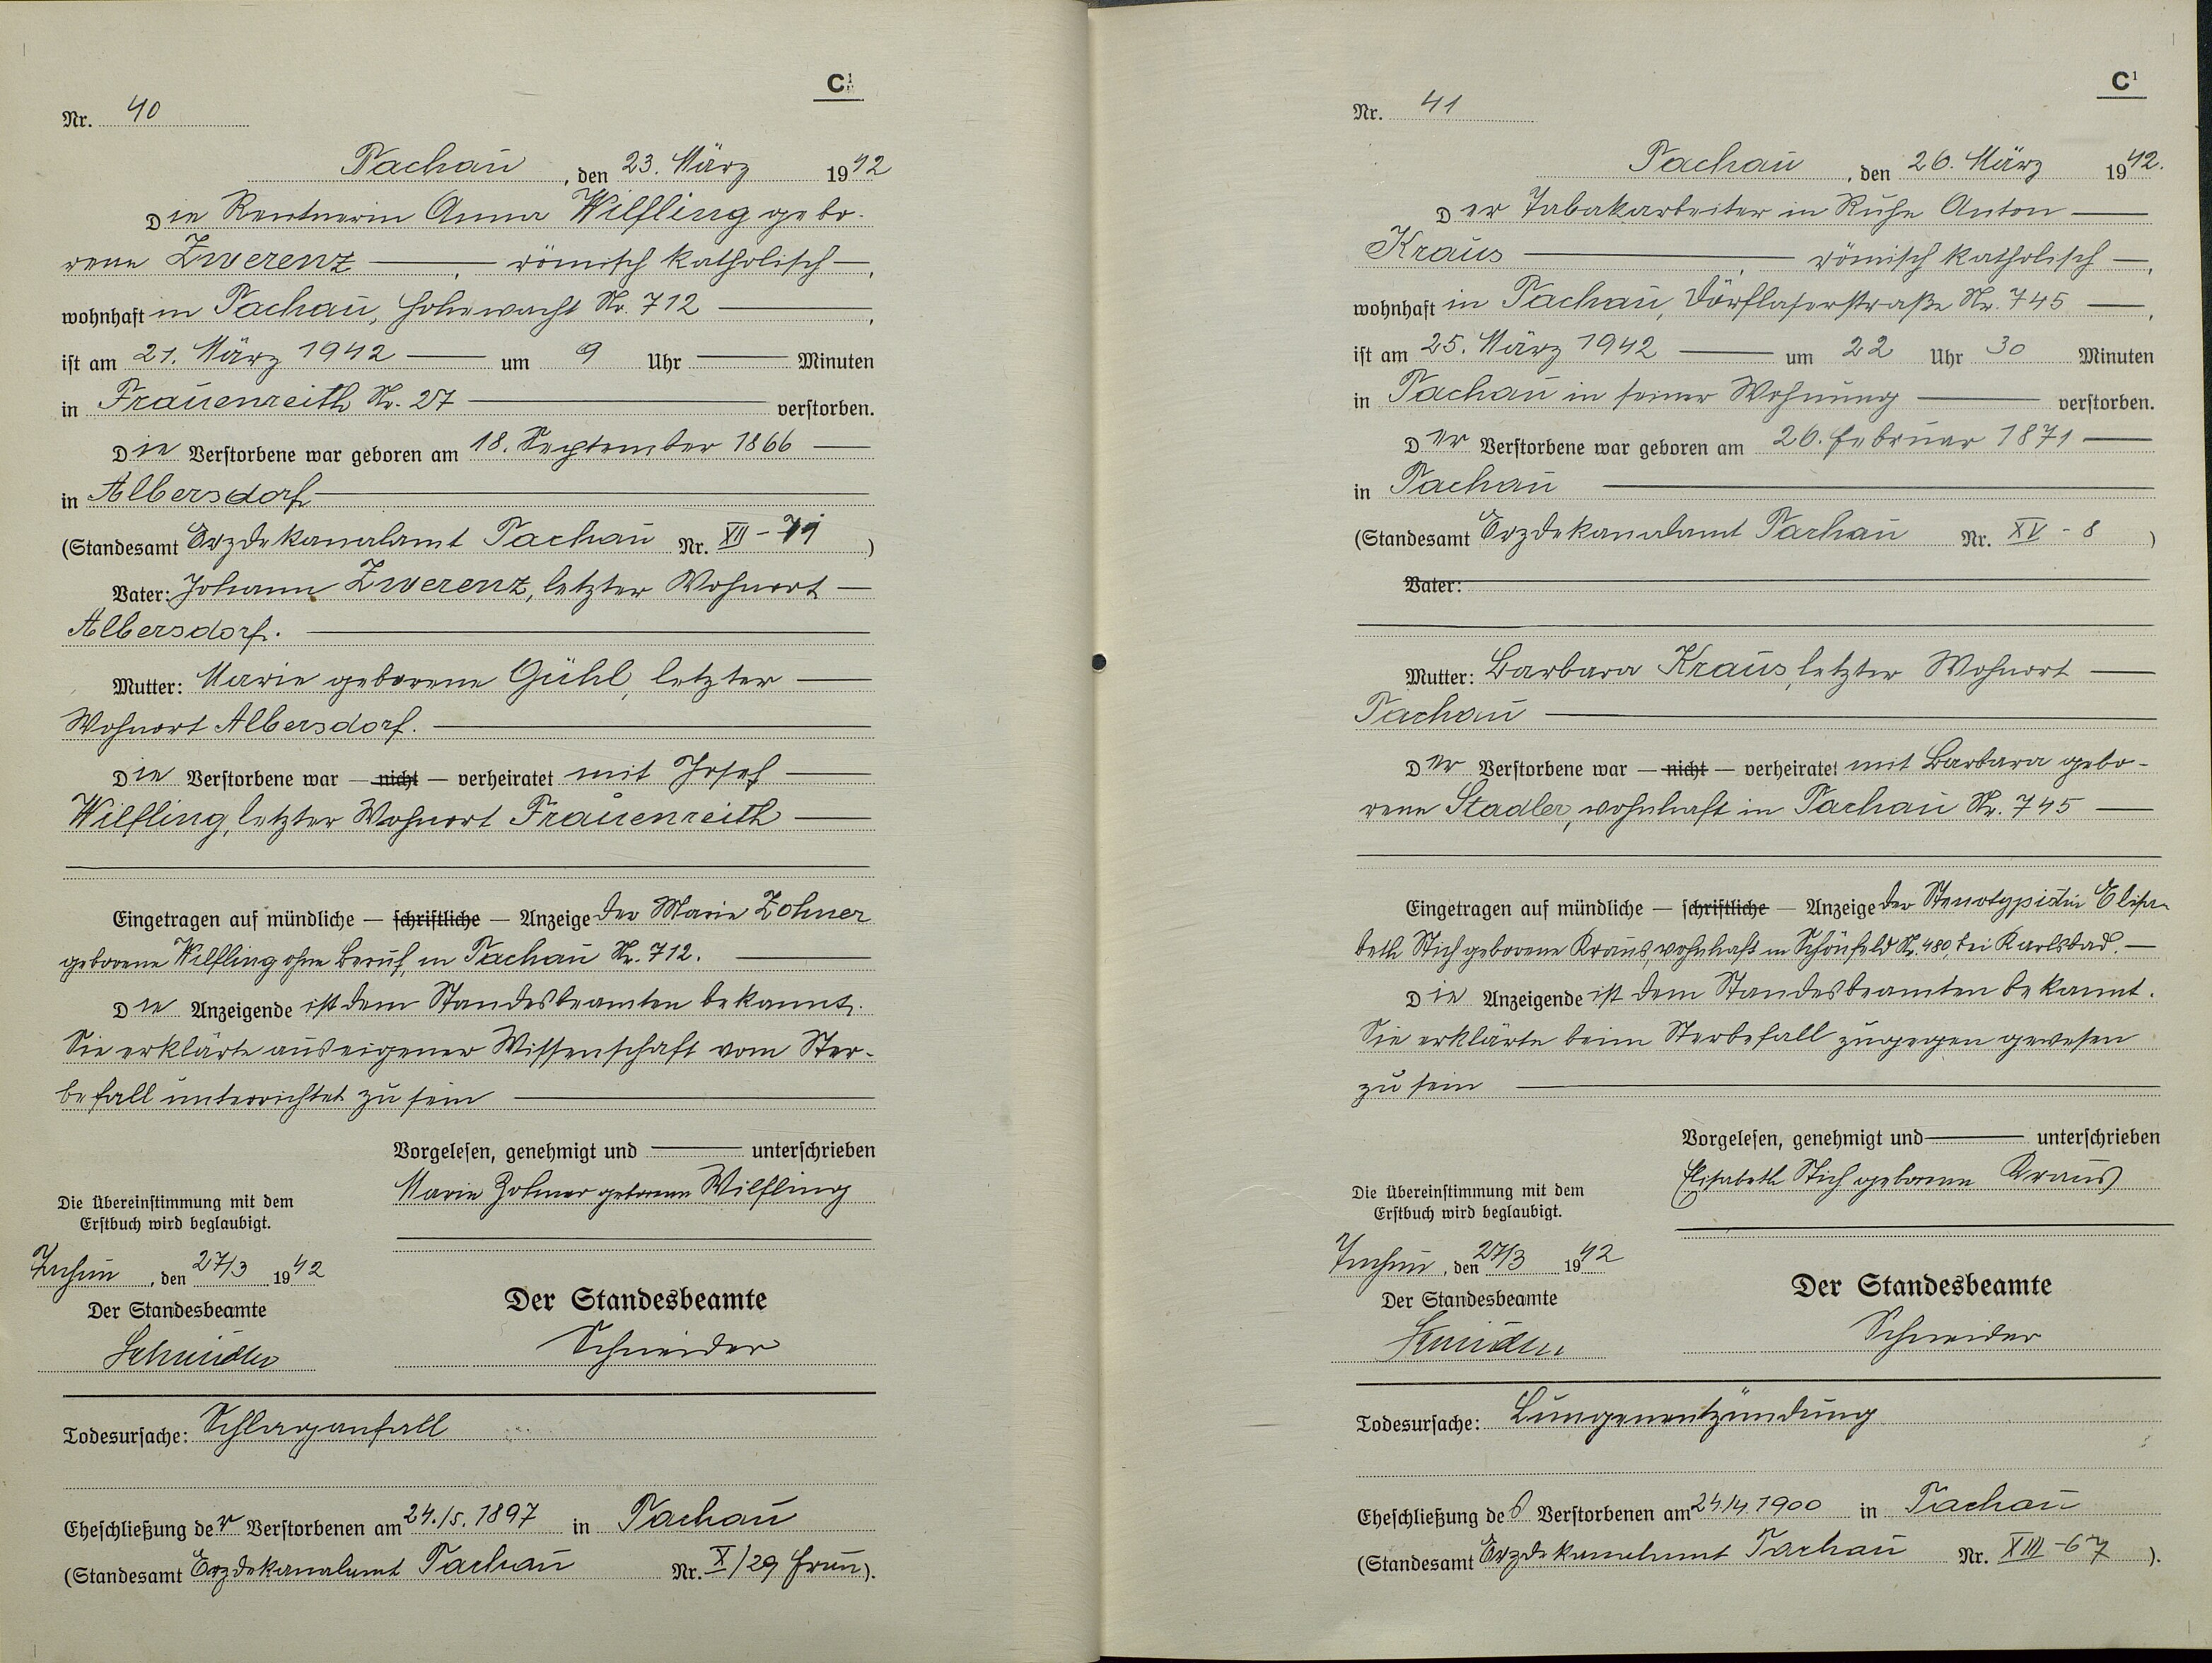 C1
Nr. 40
Tachau, den 23. März 1942
Die Rentnerin Anna Wilfling gebo-
rene Zwerenz —, — römisch katholisch —,
wohnhaft in Tachau, Hohewacht Nr. 712 —,
ist am 21. März 1942 — um 9 Uhr — Minuten
in Frauenreith Nr. 27 — verstorben.
Die Verstorbene war geboren am 18. September 1866 —
in Albersdorf —
(Standesamt Erzdekanalamt Tachau Nr. XII - 71)
Vater: Johann Zwerenz, letzter Wohnort —
Albersdorf. —
Mutter: Marie geborene Gühl, letzter —
Wohnort Albersdorf. —
Die Verstorbene war — nicht — verheiratet mit Josef —
Wilfling, letzter Wohnort Frauenreith —
Eingetragen auf mündliche — schriftliche — Anzeige der Marie Zohner
geborene Wilfling ohne Beruf, in Tachau Nr. 712. —
Die Anzeigende ist dem Standesbeamten bekannt.
Sie erklärte aus eigener Wissenschaft vom Ster-
befall unterrichtet zu sein —
Vorgelesen, genehmigt und — unterschrieben
Marie Zohner geborene Wilfling
Die Übereinstimmung mit dem
Erstbuch wird beglaubigt.
Tachau, den 27/3 1942
Der Standesbeamte
Schneider
Der Standesbeamte
Schneider
Todesursache: Schlaganfall
Eheschließung der Verstorbenen am 24./5. 1897 in Tachau
(Standesamt Erzdekanalamt Tachau Nr. X/29 Frau).
C1
Nr. 41
Tachau, den 26. März 1942.
Der Tabakarbeiter in Ruhe Anton —
Kraus —, — römisch katholisch —,
wohnhaft in Tachau, Dörflaserstraße Nr. 745 —,
ist am 25. März 1942 — um 22 Uhr 30 Minuten
in Tachau in seiner Wohnung — verstorben.
Der Verstorbene war geboren am 26. Februar 1871 —
in Tachau —
(Standesamt Erzdekanalamt Tachau Nr. XV - 8)
Vater: —
Mutter: Barbara Kraus, letzter Wohnort —
Tachau —
Der Verstorbene war — nicht — verheiratet mit Barbara gebo-
rene Stadler, wohnhaft in Tachau Nr. 745 —
Eingetragen auf mündliche — schriftliche — Anzeige der Stenotypistin Elisa-
beth Stich geborene Kraus, wohnhaft in Schönfeld Nr. 480, bei Karlsbad. —
Die Anzeigende ist dem Standesbeamten bekannt.
Sie erklärte beim Sterbefall zugegen gewesen
zu sein —
Vorgelesen, genehmigt und — unterschrieben
Elisabeth Stich geborene Kraus
Die Übereinstimmung mit dem
Erstbuch wird beglaubigt.
Tachau, den 27/3 1942
Der Standesbeamte
Schneider
Der Standesbeamte
Schneider
Todesursache: Lungenentzündung
Eheschließung des Verstorbenen am 24./4. 1900 in Tachau
(Standesamt Erzdekanalamt Tachau Nr. XIII - 67).